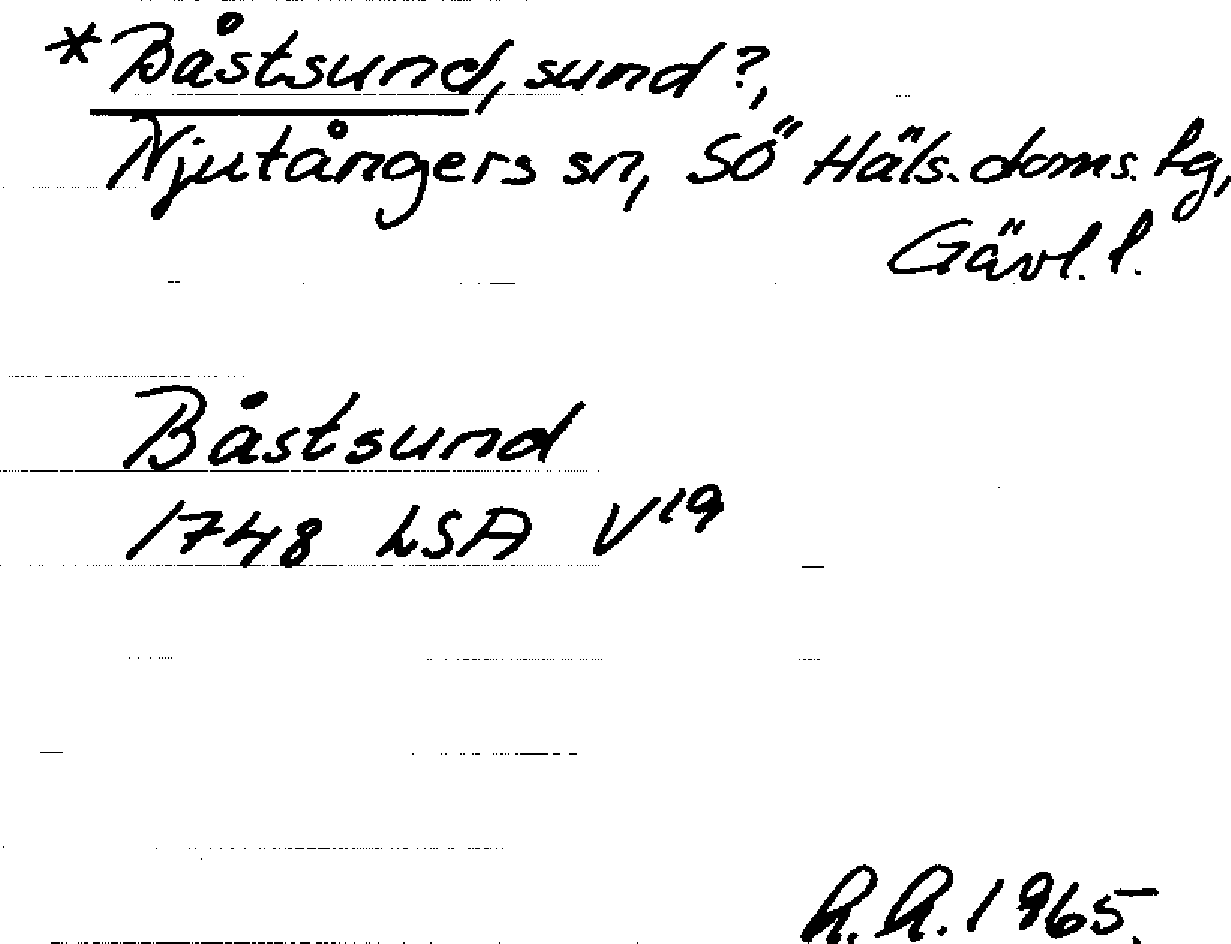 *Båstsund, sund?,
Njutångers sn, SÖ Häls. doms. lg,
Gävl. l.
Båstsund
1748 LSA V19
R.R. 1965.